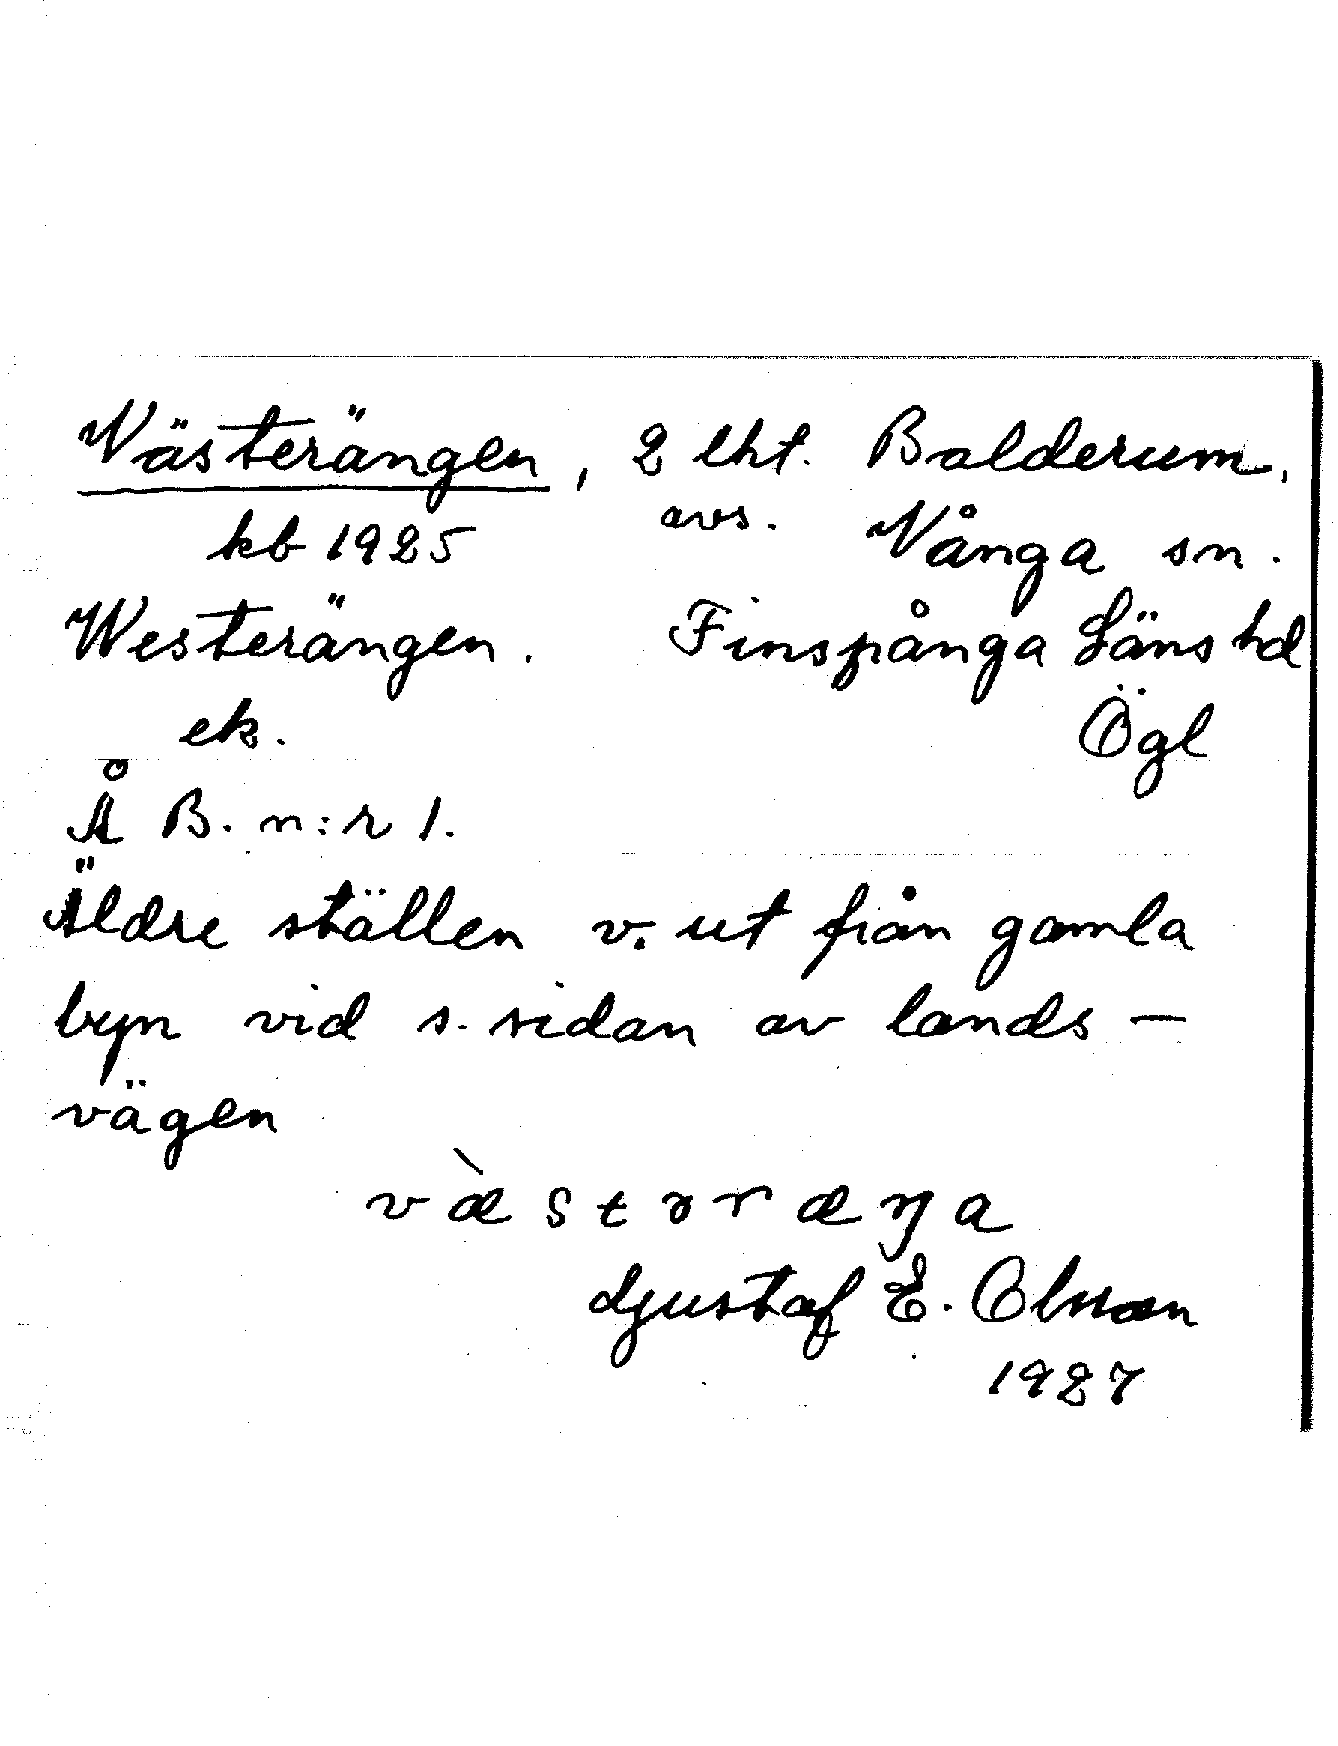 Västerängen, 2 lht. Balderum,
kb 1925 avs. Vånga sn.
Westerängen. Finspånga Läns hd
ek. Ögl
Å B. n:r 1.
Äldre ställen v. ut från gamla
byn vid s. sidan av lands-
vägen
væ̀stəræŋa
Gustaf E. Olsson
1927